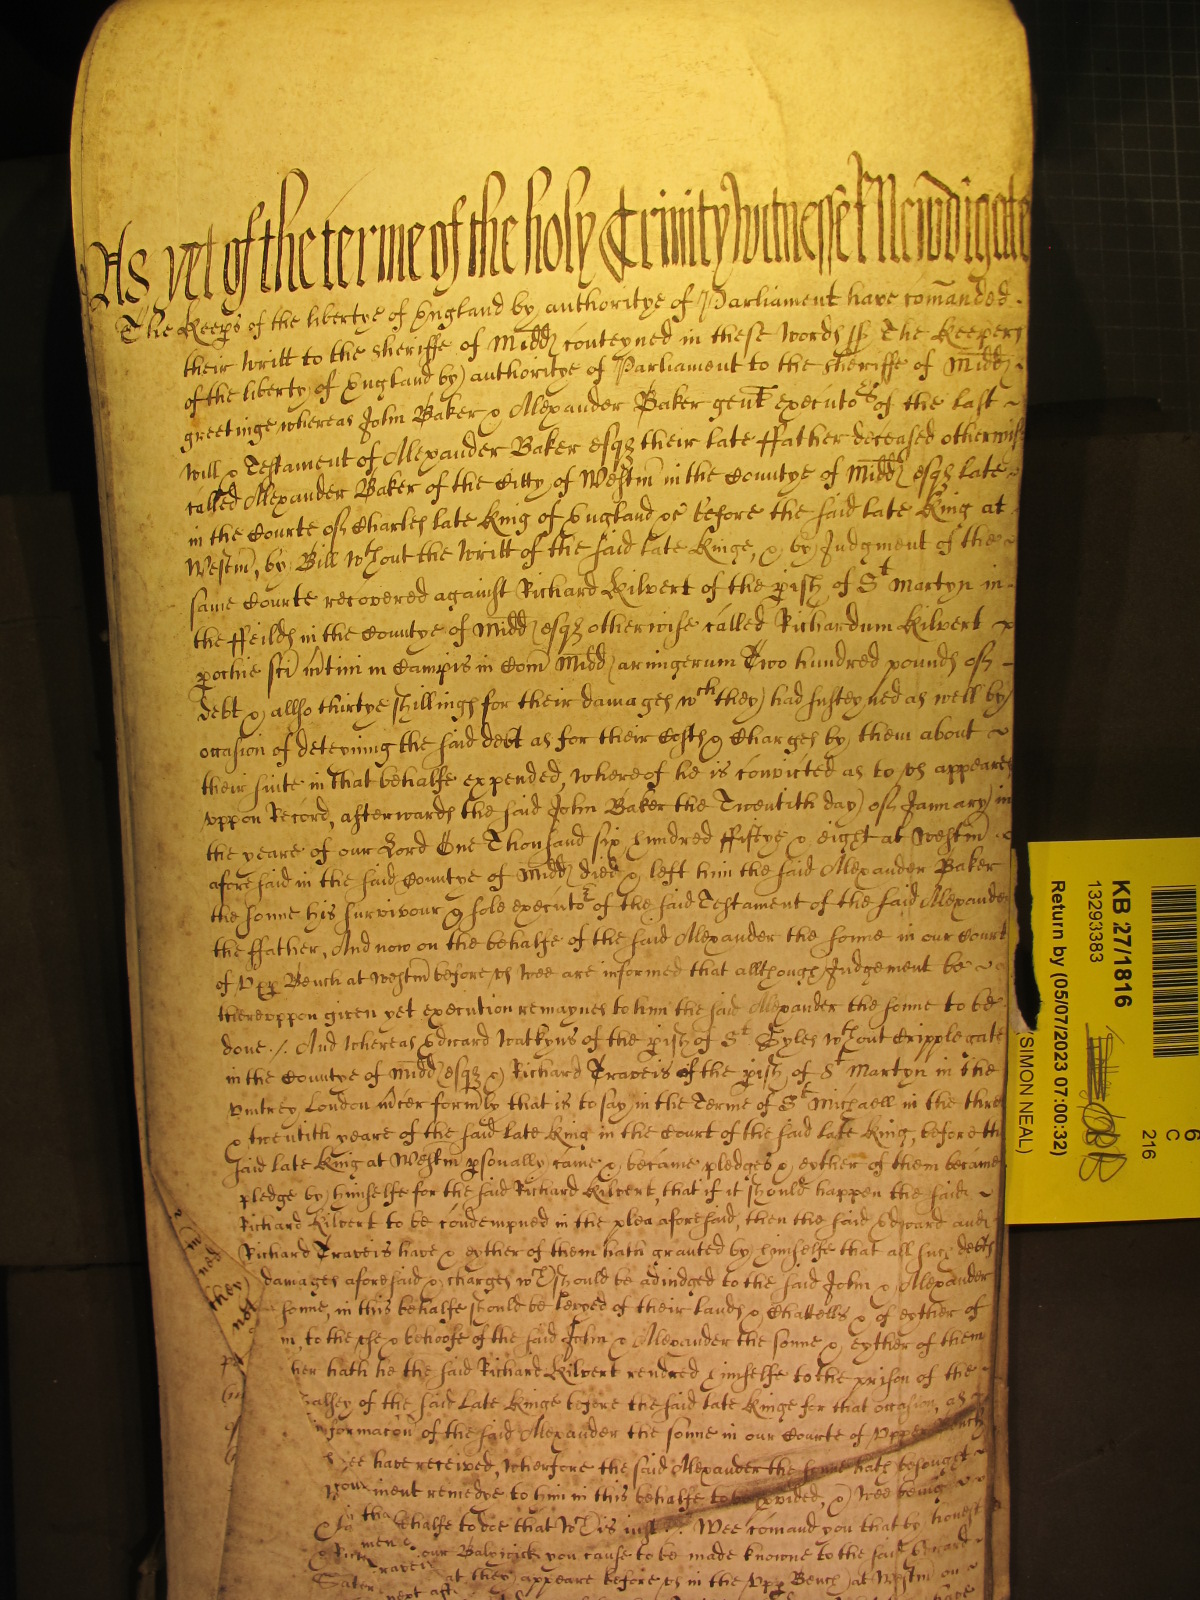 As yet of the terme of the holy Trinity Witnesse R Newdigate
The Keeps of the libertye of England by authoritye of Parliament have comanded
their writt to the Sheriffe of Midd conteyned in these words ss The Keepers
of the liberty of England by authoritye of Parliament to the Sheriffe of Midd
greetinge whereas John Baker & Alexander Baker gent executors of the last
will & Testament of Alexander Baker esqz their late ffather deceased otherwise
called Alexander Baker of the Citty of Westm in the Countye of Midd esqz late
in the Courte of Charles late King of England &c before the said late King at
Westm, by Bill wthout the writt of the said late Kinge, & by Judgment of the
same Courte recovered against Richard Kilvert of the pish of St Martyn in
the ffeilds in the Countye of Midd esqz otherwise called Richardum Kilvert
pochie sci Mtini in Campis in Com Midd armigerum Two hundred pounds of
debt & allso thirtye shillings for their damages wch they had susteyned as well by
occasion of deteyning the said debt as for their Costs & Charges by them about
their suite in that behalfe expended, whereof he is convicted as to us appeares
uppon Record, afterwards the said John Baker the Twentith day of January in
the yeare of our Lord One Thousand six hundred ffiftye & eight at Westm
aforesaid in the said Countye of Midd died & left him the said Alexander Baker
the sonne his survivour & sole executor of the said Testament of the said Alexander
the ffather, And now on the behalfe of the said Alexander the sonne in our Court
of Upp Bench at Westm before us wee are informed that allthough Judgement be
thereuppon given yet execution remaynes to him the said Alexander the sonne to be
done ./. And whereas Edward Watkyns of the pish of St Gyles wthout Cripplegate
in the Countye of Midd esqz & Richard Traveis of the pish of St Martyn in the
Vintrey London mcer formly that is to say in the Terme of St Michaell in the three
& twentith yeare of the said late King in the Court of the said late King, before the
said late King at Westm psonally came & became pledges & eyther of them became
pledge by himselfe for the said Richard Kilvert, that if it should happen the said
Richard Kilvert to be condempned in the plea aforesaid, then the said Edward and
Richard Traveis have & eyther of them hath granted by himselfe that all such debts
damages aforesaid & charges wch should be adiudged to the said John & Alexander
sonne, in this behalfe should be levyed of their lands & Chattells & of eyther of
m, to the use & behoofe of the said John & Alexander the sonne & eyther of them
her hath he the said Richard Kilvert rendred himselfe to the prison of the
alsey of the said Late Kinge before the said late Kinge for that occasion, as
informacon of the said Alexander the sonne in our Courte of Upper Bench
wee have received, Wherfore the said Alexander the sonne hath besought
ment remedye to him in this behalfe to be pvided, & wee being
in that behalfe to doe that wch is iust Wee comand you that by honest
men our Balywick you cause to be made knowne to the said Edward
& Rich Traveis that they appeare before us in the Upp Bench at Westm on
next aft
m
ned
they
not
KB 27/1816
13293383
Return by (05/07/2023 07:00:32)
(SIMON NEAL)
6
C
216